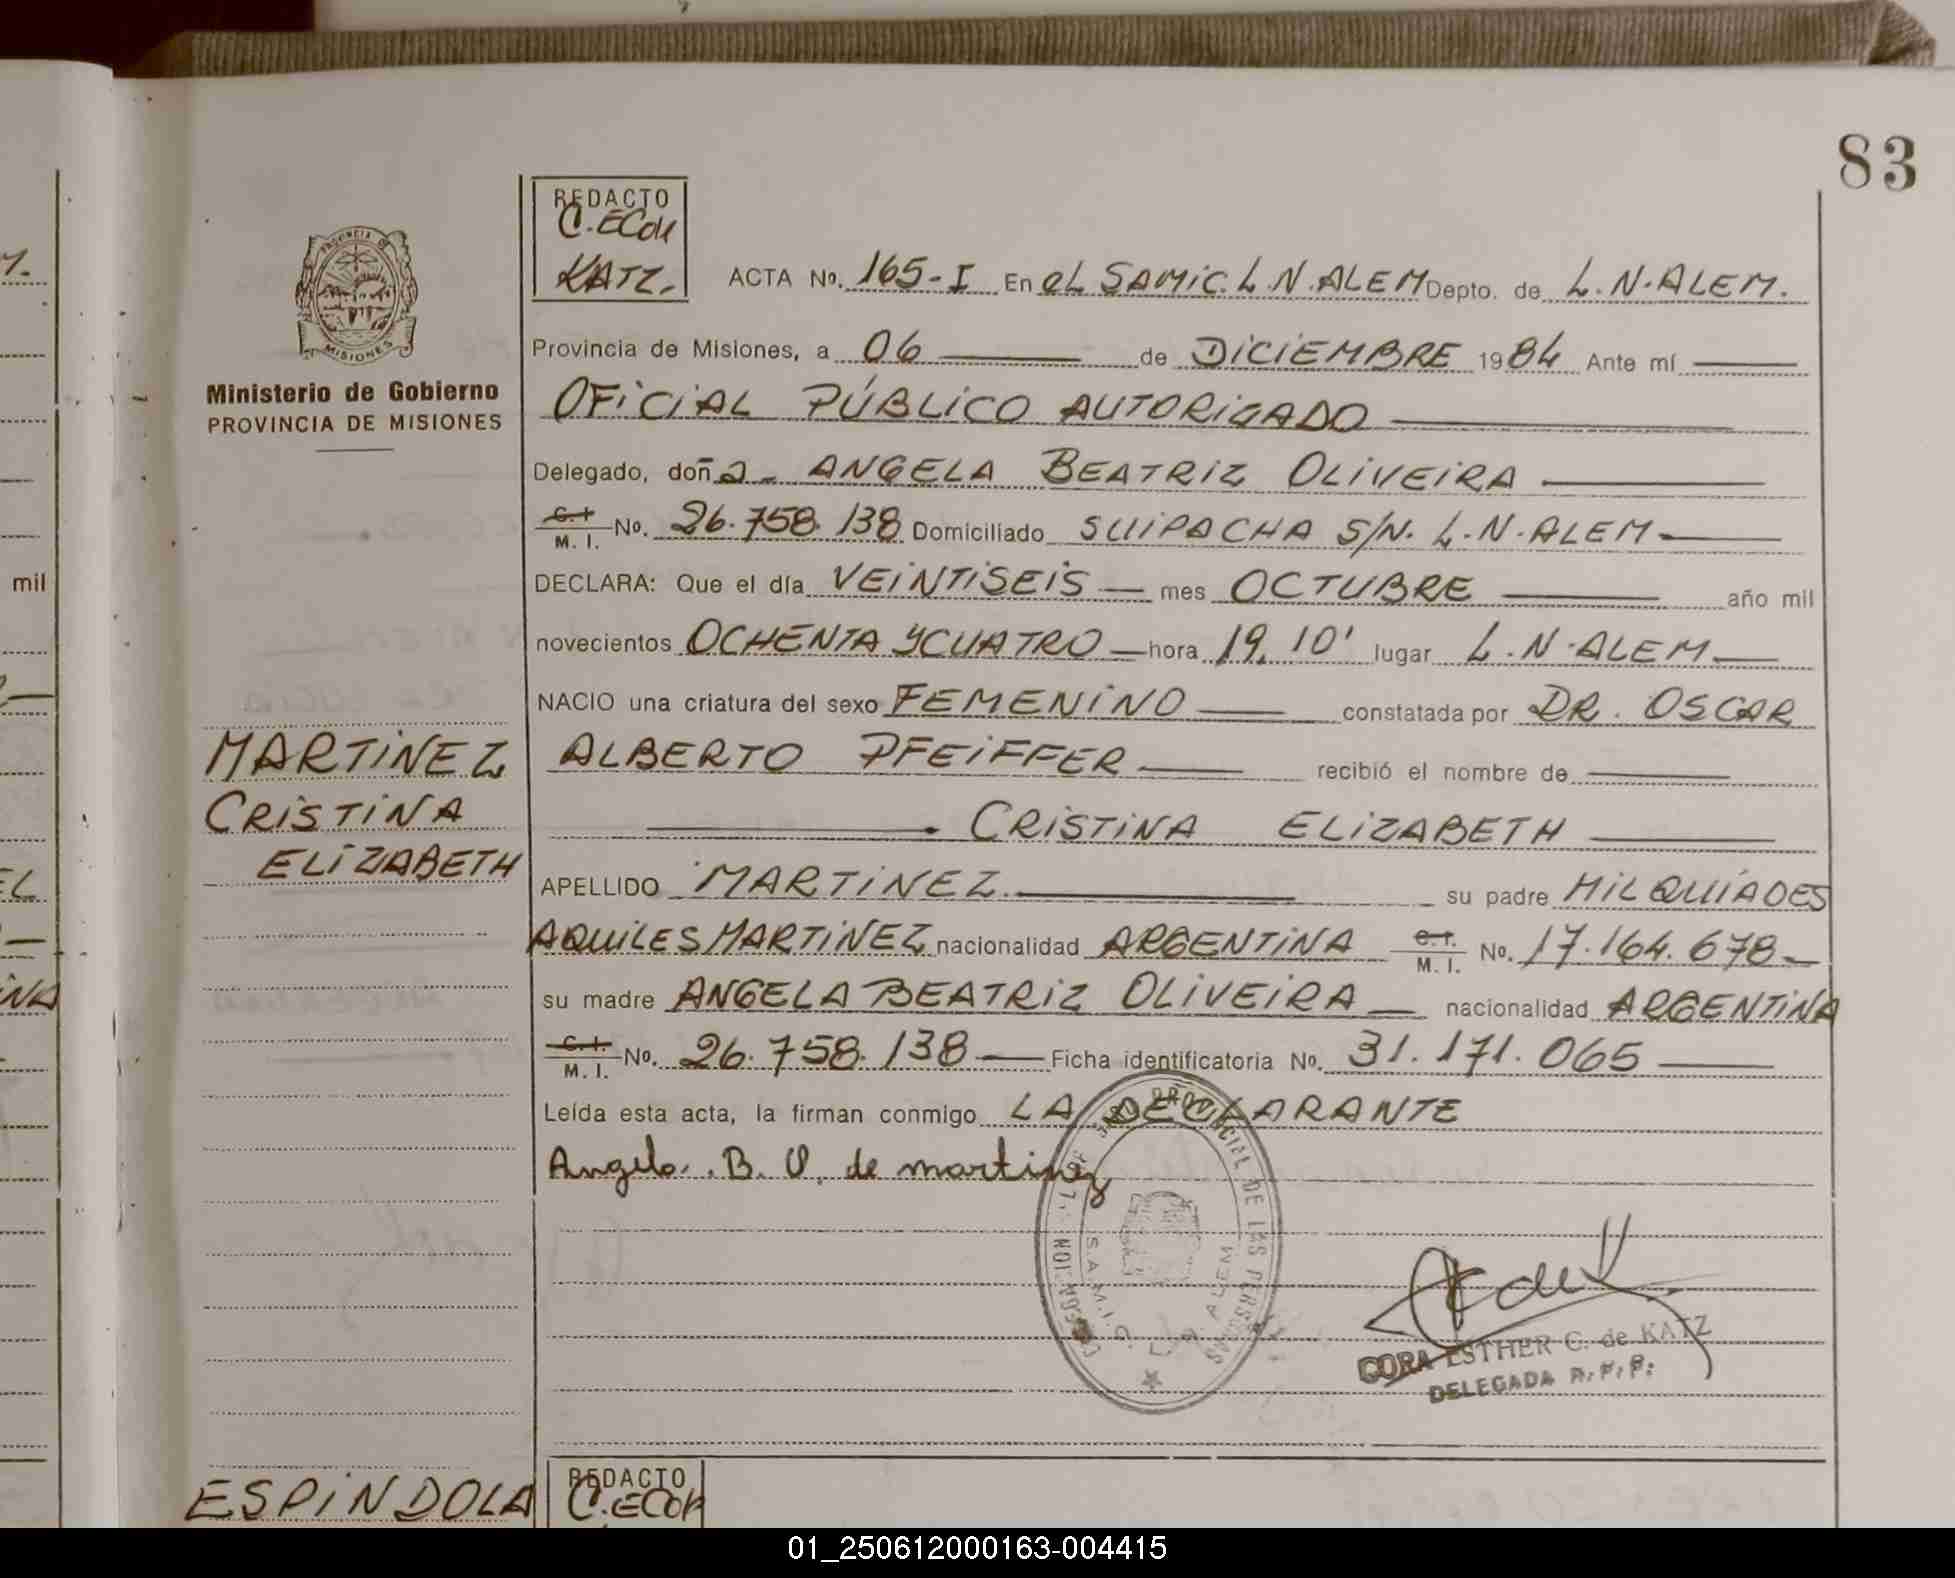 83
REDACTO
C. ECOR
KATZ.
PROVINCIA DE
MISIONES
Ministerio de Gobierno
PROVINCIA DE MISIONES
ACTA No. 165-I En eL SAMIC. L.N. ALEM Depto. de L.N. ALEM.
Provincia de Misiones, a 06 de DICIEMBRE 1984 Ante mí
OFICIAL PÚBLICO AUTORIZADO
Delegado, doña ANGELA BEATRIZ OLIVEIRA
C. I.
M. I. No. 26.758.138 Domiciliado SUIPACHA S/N. L.N. ALEM
DECLARA: Que el día VEINTISEIS mes OCTUBRE año mil
novecientos OCHENTA Y CUATRO hora 19,10' lugar L.N. ALEM
NACIO una criatura del sexo FEMENINO constatada por DR. OSCAR
ALBERTO PFEIFFER recibió el nombre de
CRISTINA ELIZABETH
APELLIDO MARTINEZ su padre MILQUÍADES
AQUILES MARTINEZ nacionalidad ARGENTINA C. I.
M. I. No. 17.164.678
su madre ANGELA BEATRIZ OLIVEIRA nacionalidad ARGENTINA
C. I.
M. I. No. 26.758.138 Ficha identificatoria No. 31.171.065
Leída esta acta, la firman conmigo LA DECLARANTE
Angela B. O. de martinez
MARTINEZ
CRISTINA
ELIZABETH
PROVINCIAL DE LAS PERSONAS
S.A.M.I.C.
ALEM
CORA ESTHER C. de KATZ
DELEGADA R.P.P.
ESPINDOLA
REDACTO
C. ECOR
M.
mil
EL
INA
01_250612000163-004415